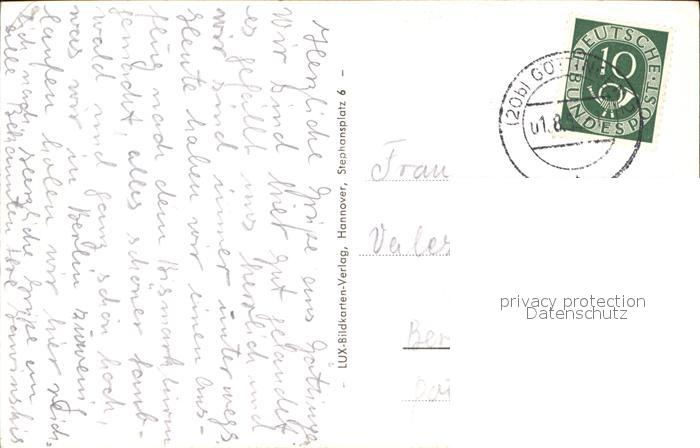 Herzliche Grüße aus Göttingen
Wir sind hier gut gelandet
es gefällt uns herrlich und
wir sind immer unterwegs.
Heute haben wir einen Aus-
flug nach dem Bismarkturm
gemacht alles schöner Laub-
wald und ganz schön hoch,
was wir in Berlin zuwenig
laufen holen wir hier reich-
lich nach. Herzliche Grüße an
alle Bekannten Ihre
LUX-Bildkarten-Verlag, Hannover, Stephansplatz 6
DEUTSCHE
BUNDESPOST
10
(20b) GÖTTINGEN
01.8.5
Frau
Vales
Ber
privacy protection
Datenschutz